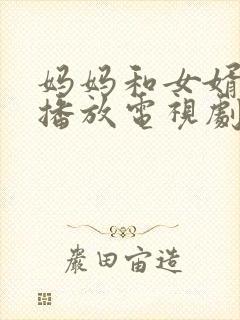 妈妈和女婿
播放電視劇
嚴田宙造